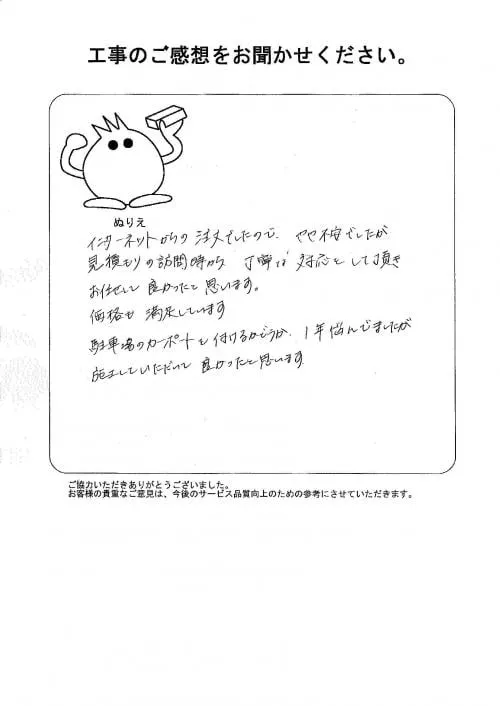 工事のご感想をお聞かせください。
ぬりえ
インターネットからの注文でしたので、やや不安でしたが
見積もりの訪問時から 丁寧な対応をして頂き
お任せして良かったと思います。
価格も満足しています
駐車場のカーポートを付けるかどうか、1年悩んでましたが
施工していただいて良かったと思います
ご協力いただきありがとうございました。
お客様の貴重なご意見は、今後のサービス品質向上のための参考にさせていただきます。